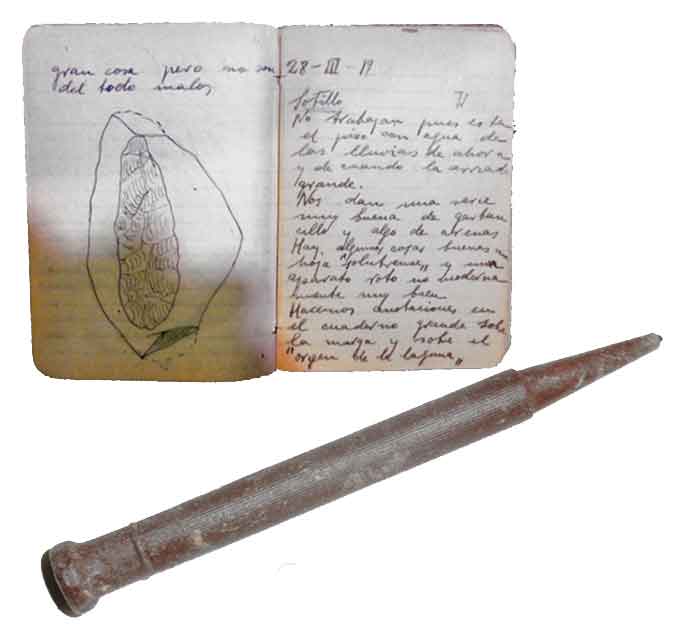 gran cosa pero no son
del todo malos
28-III-19
Sotillo
No trabajan pues esta
el piso con agua de
las lluvias de ahora
y de cuando la
grande.
Nos dan una serie
muy buena de garban
cillo y algo de arenas
Hay algunas cosas buenas
hoja "solutrense" y un
aparato roto no moderna
mente muy bien
Hacemos anotaciones en
el cuaderno grande sobre
la marga y sobre el
"origen de la laguna"